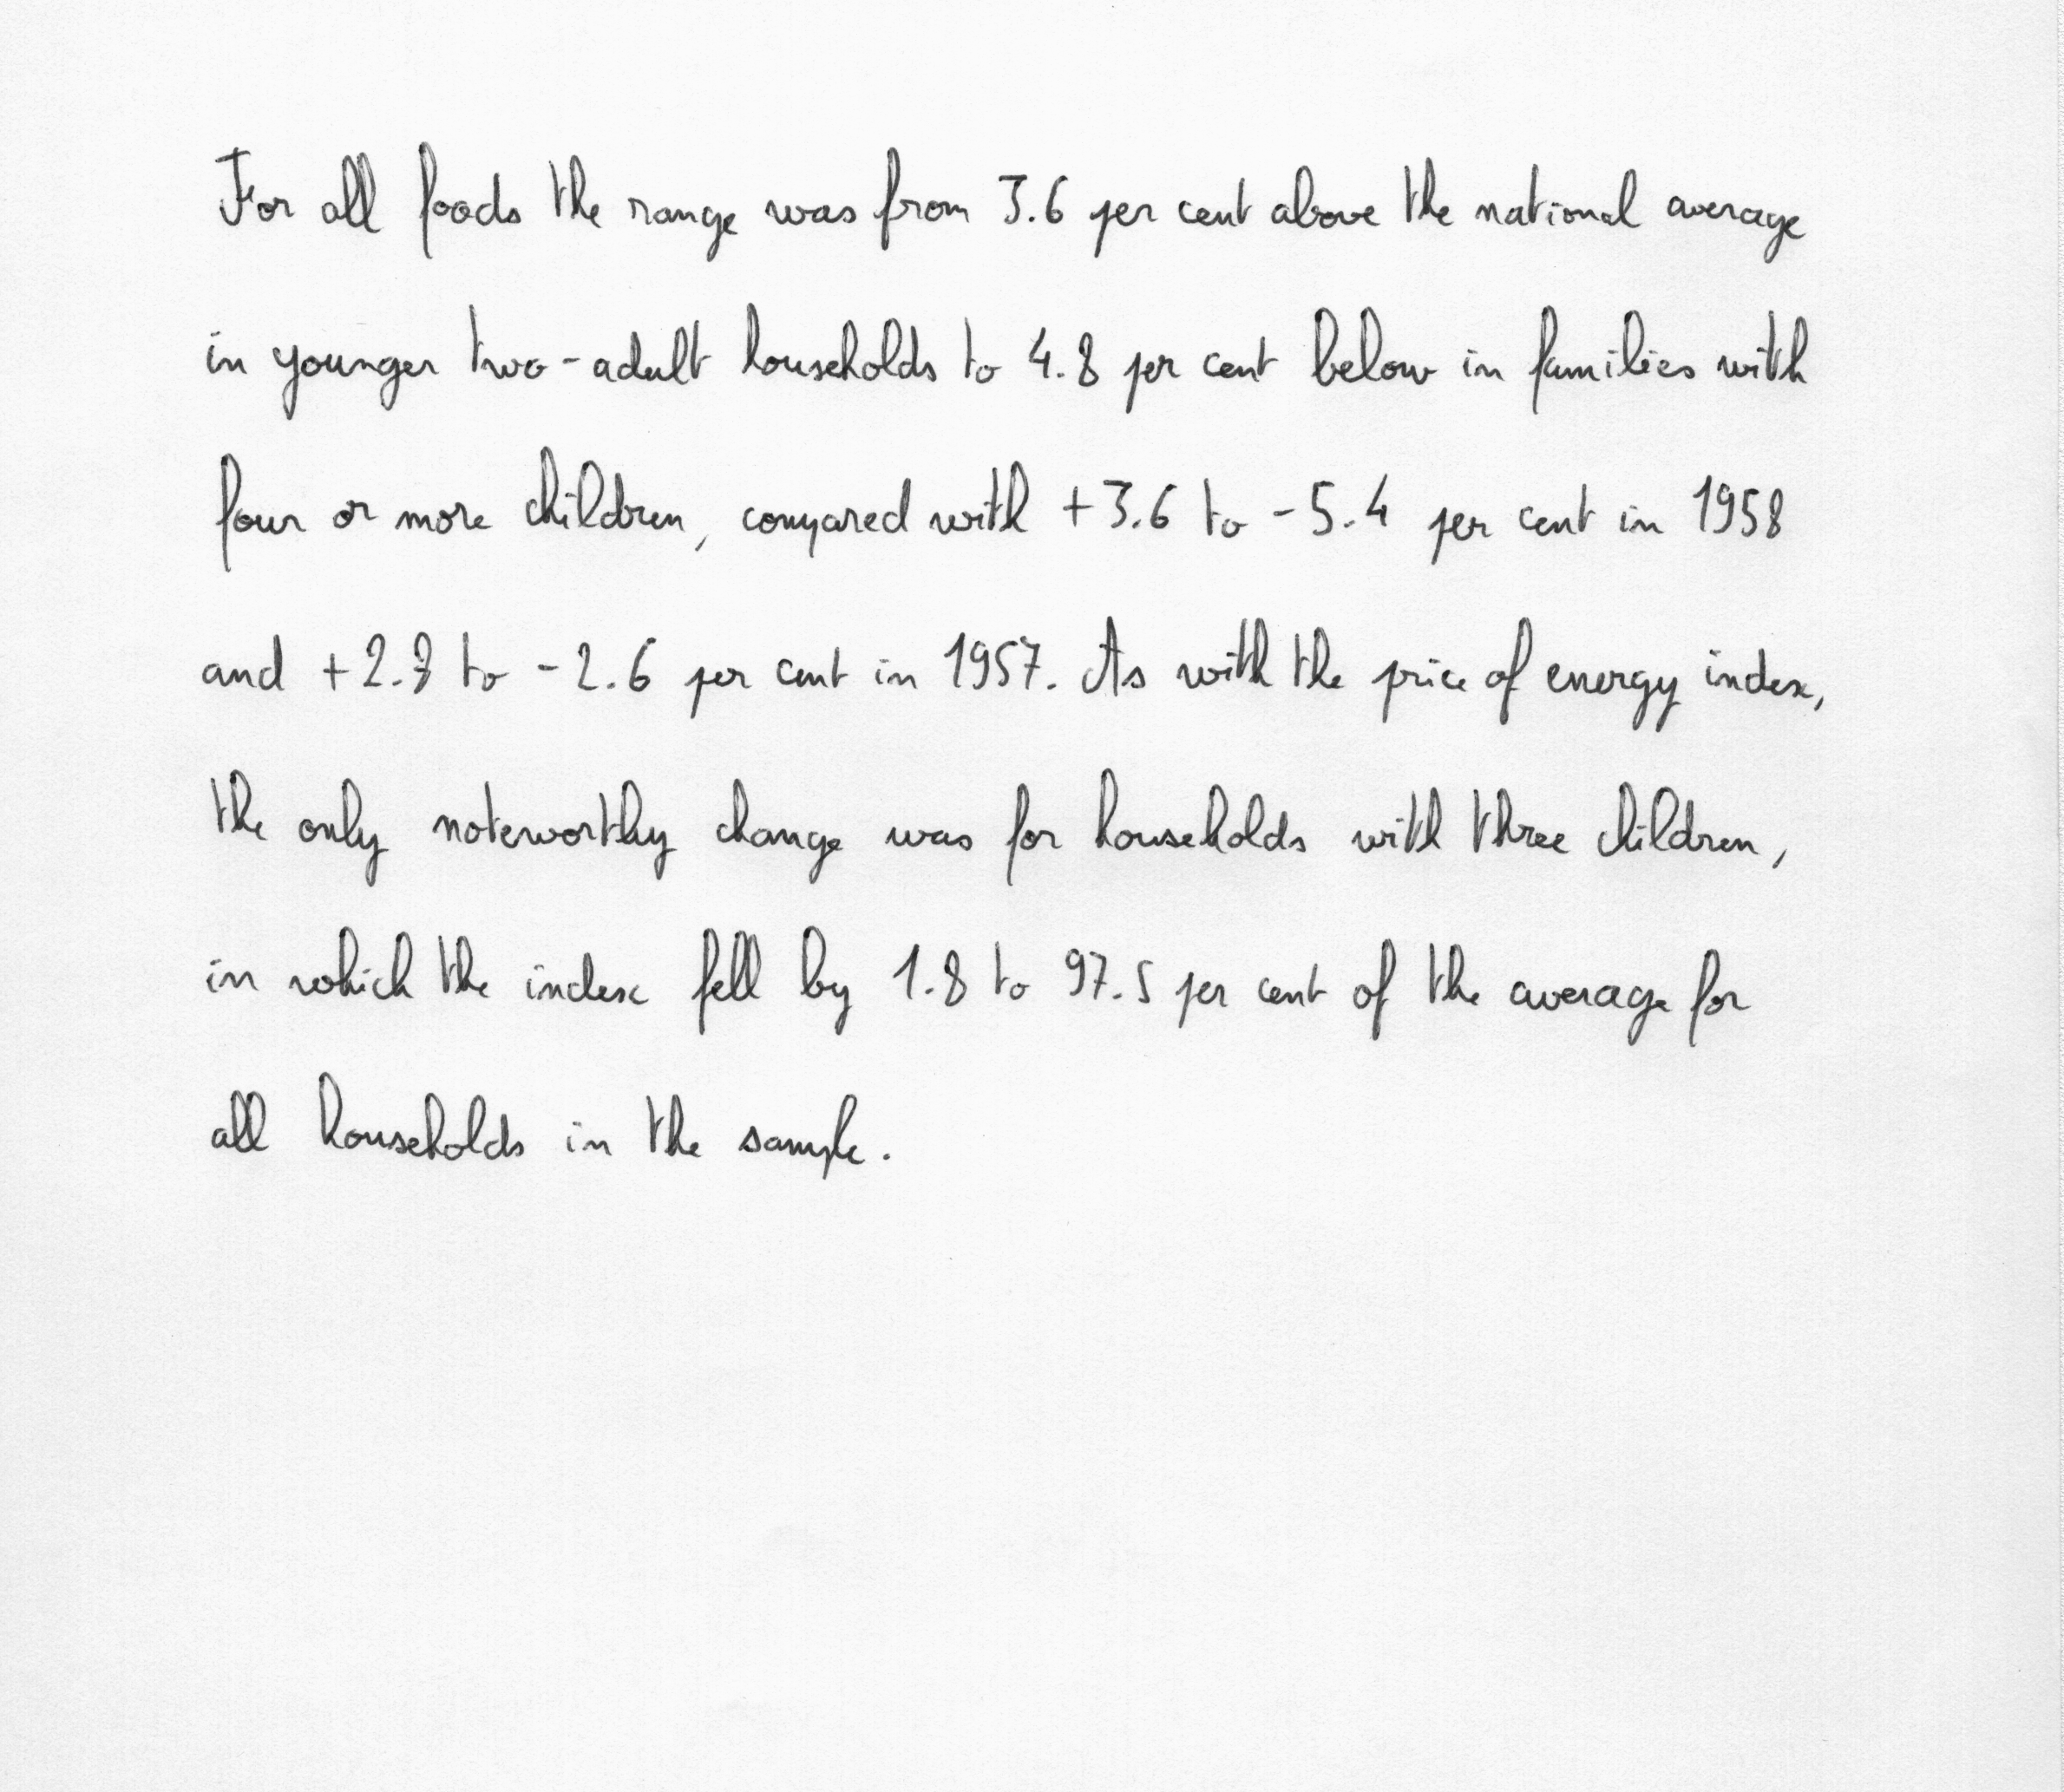 For all foods the range was from 3.6 per cent above the national average
in younger two-adult households to 4.8 per cent below in families with
four or more children, compared with +3.6 to -5.4 per cent in 1958
and to -2.6 per cent in 1957. As with the price of energy index,
the only noteworthy change was for households with three children,
in which the index fell by 1.8 to 97.5 per cent of the average for
all households in the sample.